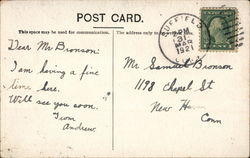 POST CARD.
This space may be used for communication.
The address only to
SUFFIELD
PM
31
MAR
1921
Dear Mr Bronson:
I am having a fine
time here.
Will see you soon.
From
Andrew
Mr Samuel Bronson
1198 Chapel St
New
Conn